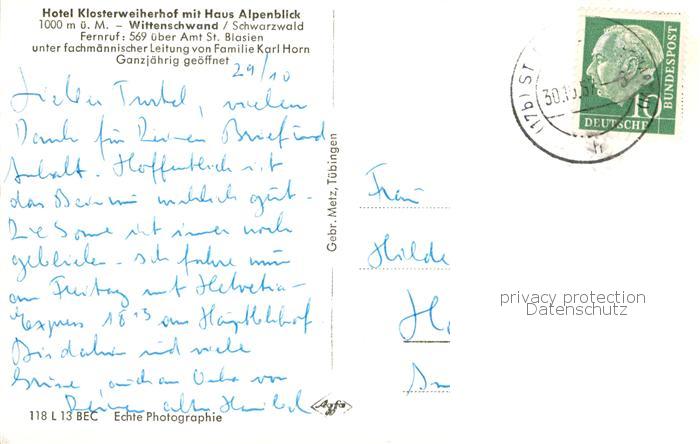 Hotel Klosterweiherhof mit Haus Alpenblick
1000 m ü. M. – Wittenschwand / Schwarzwald
Fernruf: 569 über Amt St. Blasien
unter fachmännischer Leitung von Familie Karl Horn
Ganzjährig geöffnet
29/10
vielen
Dank für Deinen Brief und
Inhalt. Hoffentlich ist
das Bein nun wirklich gut.
Die Sonne ist immer noch
geblieben. Ich fahre nun
am Freitag mit Helvetia-
Express 18 13 am Hauptbhhof.
Bis dahin sind viele
Grüsse, auch an von
Deinem alten
118 L 13 BEC Echte Photographie
Agfa
Gebr. Metz, Tübingen
(17b) ST
30.10.57
10
DEUTSCHE
BUNDESPOST
Frau
Hilde
privacy protection
Datenschutz